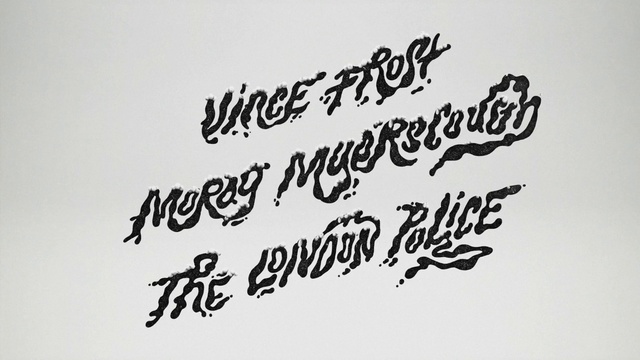 Vince Frost
Morag Myerscough
The London Police